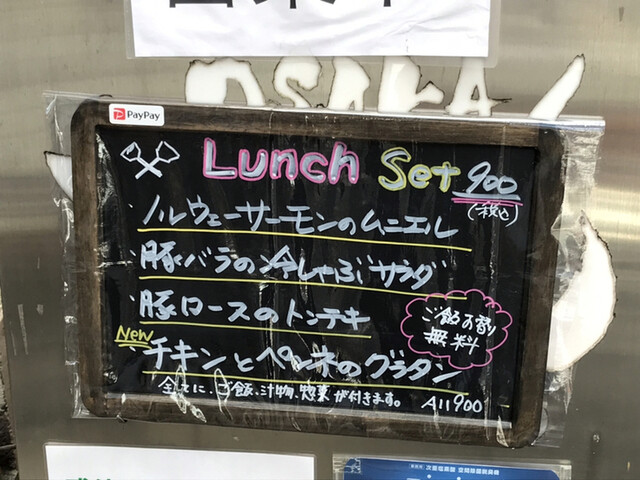 OSAKA
PayPay
Lunch Set 900
(税込)
ノルウェーサーモンのムニエル
豚バラの冷しゃぶサラダ
豚ロースのトンテキ
ご飯大割
無料
New
チキンとペンネのグラタン
全てに、ご飯、汁物、惣菜が付きます。 All 900